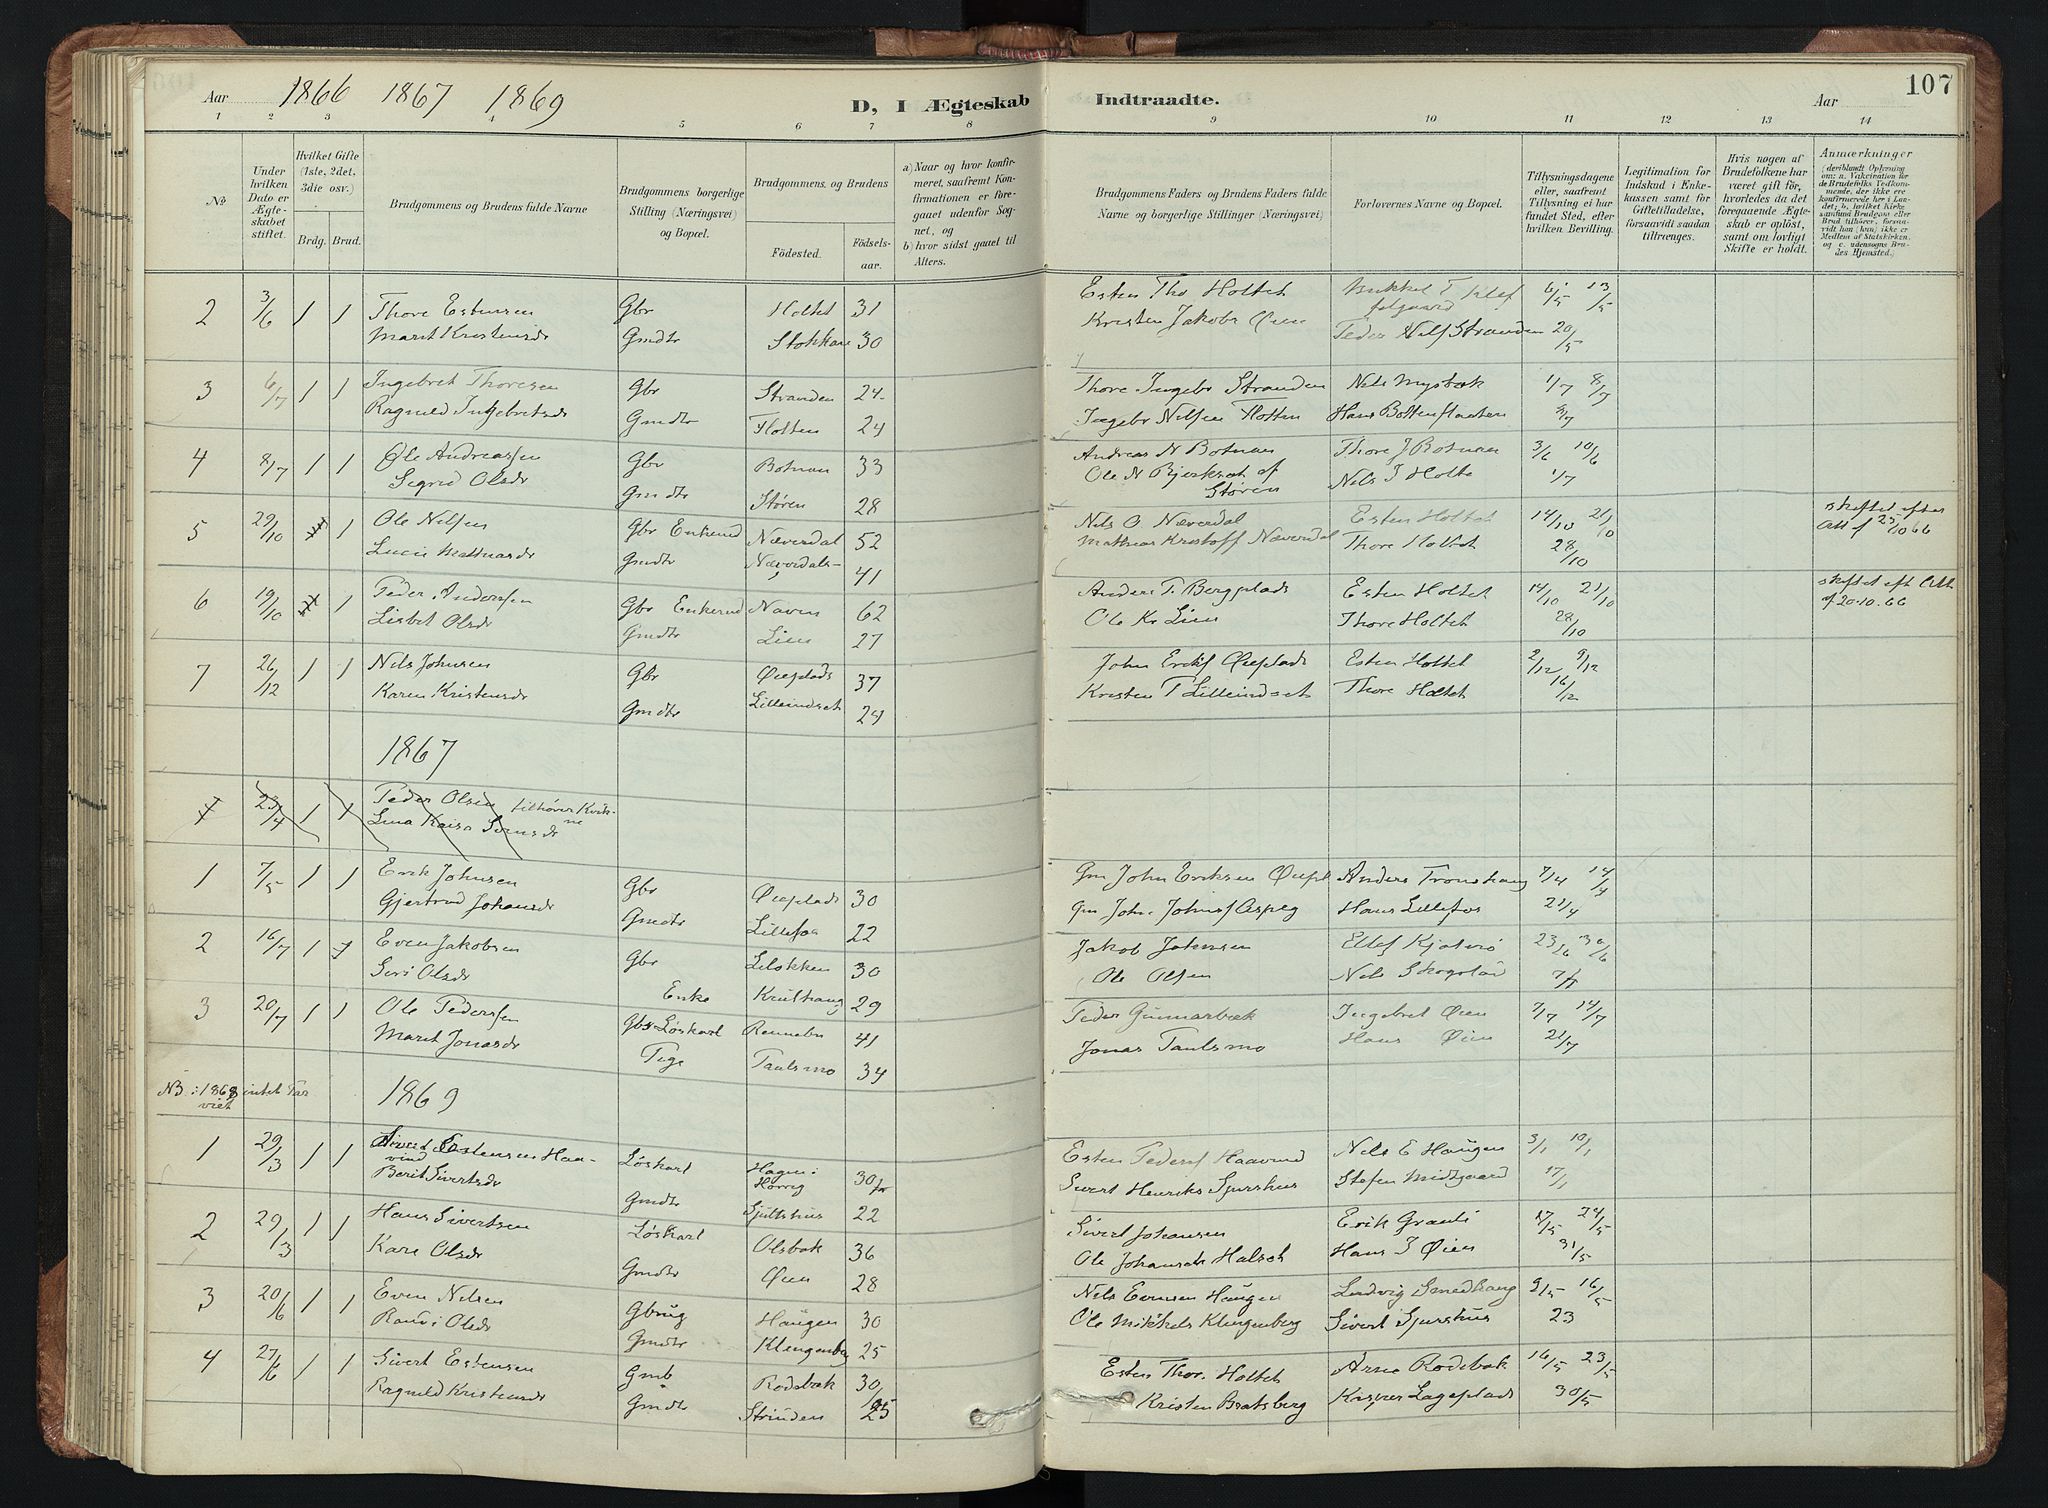 107
Aar 1866 1867 1869 D, I Ægteskab Indtraadte. Aar
1 2 3 4 5 6 7 8 9 10 11 12 13 14
No
Under hvilken Dato er Ægteskabet stiftet.
Hvilket Gifte (1ste, 2det, 3die osv.)
Brdg. Brud.
Brudgommens og Brudens fulde Navne
Brudgommens borgerlige Stilling (Næringsvei) og Bopæl.
Brudgommens, og Brudens
Födested. Födselsaar.
a) Naar og hvor konfirmeret, saafremt Konfirmationen er foregaaet udenfor Sognet, og
b) hvor sidst gaaet til Alters.
Brudgommens Faders og Brudens Faders fulde Navne og borgerlige Stillinger (Næringsvei)
Forlovernes Navne og Bopæl.
Tillysningsdagene eller, saafremt Tillysning ei har fundet Sted, efter hvilken Bevilling.
Legitimation for Indskud i Enkekassen samt for Giftetilladelse, forsaavidt saadan tiltrænges.
Hvis nogen af Brudefolkene har været gift för, hvorledes da det foregaaende Ægteskab er oplöst, samt om lovligt Skifte er holdt.
Anmærkninger (deriblandt Oplysning om: a. Vakcination for de Brudefolks Vedkommende, der ikke ere konfirmerede her i Landet; b. hvilket Kirkesamfund Brudgom eller Brud tilhörer, forsaavidt han (hun) ikke er Medlem af Statskirken, og c. udensogns Brudes Hjemsted.)
2 3/6 1 1 Thore Estensen Gbr Holtet 31 Esten Tho Holtet 6/5 13/5
Marit Kristensdr Gmdtr Stokkan 30 Kristen Jakobs Øien Peder Nilss Stranden 20/5
3 6/7 1 1 Ingebret Thoresen Gbr Stranden 24 Thore Ingebr Stranden Nils Mysbæk 1/7 8/7
Ragnild Ingebretsdr Gmdtr Flotten 24 Ingebr Nilsen Flotten Hans Bottenflaaten
4 8/7 1 1 Ole Andreassen Gbr Botnan 33 Andreas N Botnan Thore J Botnan 3/6 10/6
Sigrid Olsdr Gmdtr Støren 28 Ole N Bjerkset af Støren Nils J Holte 1/7
5 29/10 1 Ole Nilsen Gbr Enkemd Næverdal 52 Nils O Næverdal Esten Holtet 14/10 21/10 skiftet efter Att f 25/10 66
Lucie Mathiasdr Gmdtr Næverdals 41 Mathias Kristoff Næverdal Thore Holtet 28/10
6 19/10 1 Peder Anderssen Gbr Enkemd Naven 62 Anders T. Bergplads Esten Holtet 14/10 21/10 skiftet eft Att f 20.10.66
Lisbet Olsdr Gmdtr Lien 27 Ole Kr Lien Thore Holtet 28/10
7 26/12 1 1 Nils Johnsen Gbr Øieplads 37 John Eriks Øieplads Esten Holtet 2/12 9/12
Karen Kristensdr Gmdtr Lilleindset 24 Kristen T Lilleindset Thore Holtet 16/12
1867
1 23/4 1 1 Peder Olsen tilhører Kvikne
Lina Kaisa Svensdr
1 7/5 1 1 Erik Johnsen Gbr Øieplads 30 Gm John Eriksen Øiepl Anders Tronshaug 7/4 14/4
Gjertrud Johansdr Gmdtr Lillefos 22 Gm John Johns Aspeg Hans Lillefos 21/4
2 16/7 1 1 Even Jakobsen Gbr Liløkken 30 Jakob Johnsen Ellef Kjølmo 23/6 30/6
Siri Olsdr Enke Krulhaug 29 Ole Olsen Nils Skogslør
3 20/7 1 1 Ole Pederssen Gbr Løskarl Rennebu 41 Peder Gunnarbæk Ingebret Øien 7/7 14/7
Marit Jonasdr Pige Paulsmo 34 Jonas Paulsmo Hans Øien 21/7
NB: 1868 intet Par viet 1869
1 29/3 1 1 Sivert Estensen Haavind Løskarl Hagen Horrig 30 Esten Peders Haavind Nils E Haugen 3/1 10/1
Berit Sivertsdr Gmdtr Sjurshus 22 Sivert Henriks Sjurshus Stefen Midtgaard 17/1
2 29/3 1 1 Hans Sivertsen Løskarl Olsbæk 36 Sivert Johansen Erik Granli 17/5 24/5
Kari Olsdr Gmdtr Øien 28 Ole Johansen Halset Hans J Øien 31/5
3 20/6 1 1 Even Nilsen Gbrug Haugen 30 Nils Evensen Haugen Ludvig Smedhaug 9/5 16/5
Randi Olsdr Gmdtr Klingenberg 25 Ole Mikkels Klingenberg Sivert Sjurshus 23
4 27/6 1 1 Sivert Estensen Gmb Rodebæk 30 Esten Thor. Holtet Arne Rodebæk 16/5 23/5
Ragnild Kristensdr Gmdtr Strinden 25 Kristen Bratsberg Kasper Lageplads 30/5